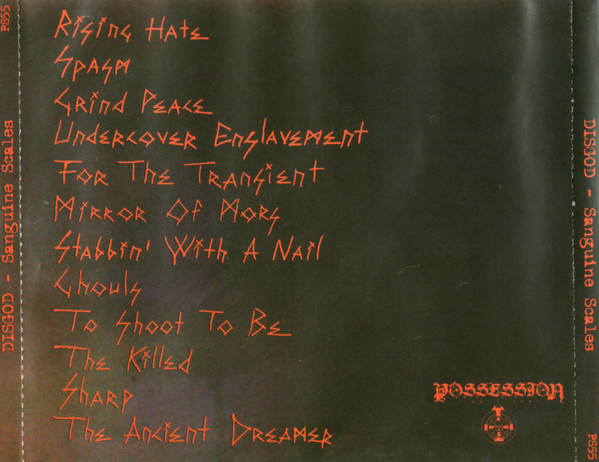 PS55
DISGOD - Sanguine Scales
Rising Hate
Spasm
Grind Peace
Undercover Enslavement
For The Transient
Mirror Of Mors
Stabbin' With A Nail
Ghouls
To Shoot To Be
The Killed
Sharp
The Ancient Dreamer
POSSESSION
DISGOD - Sanguine Scales
PS55